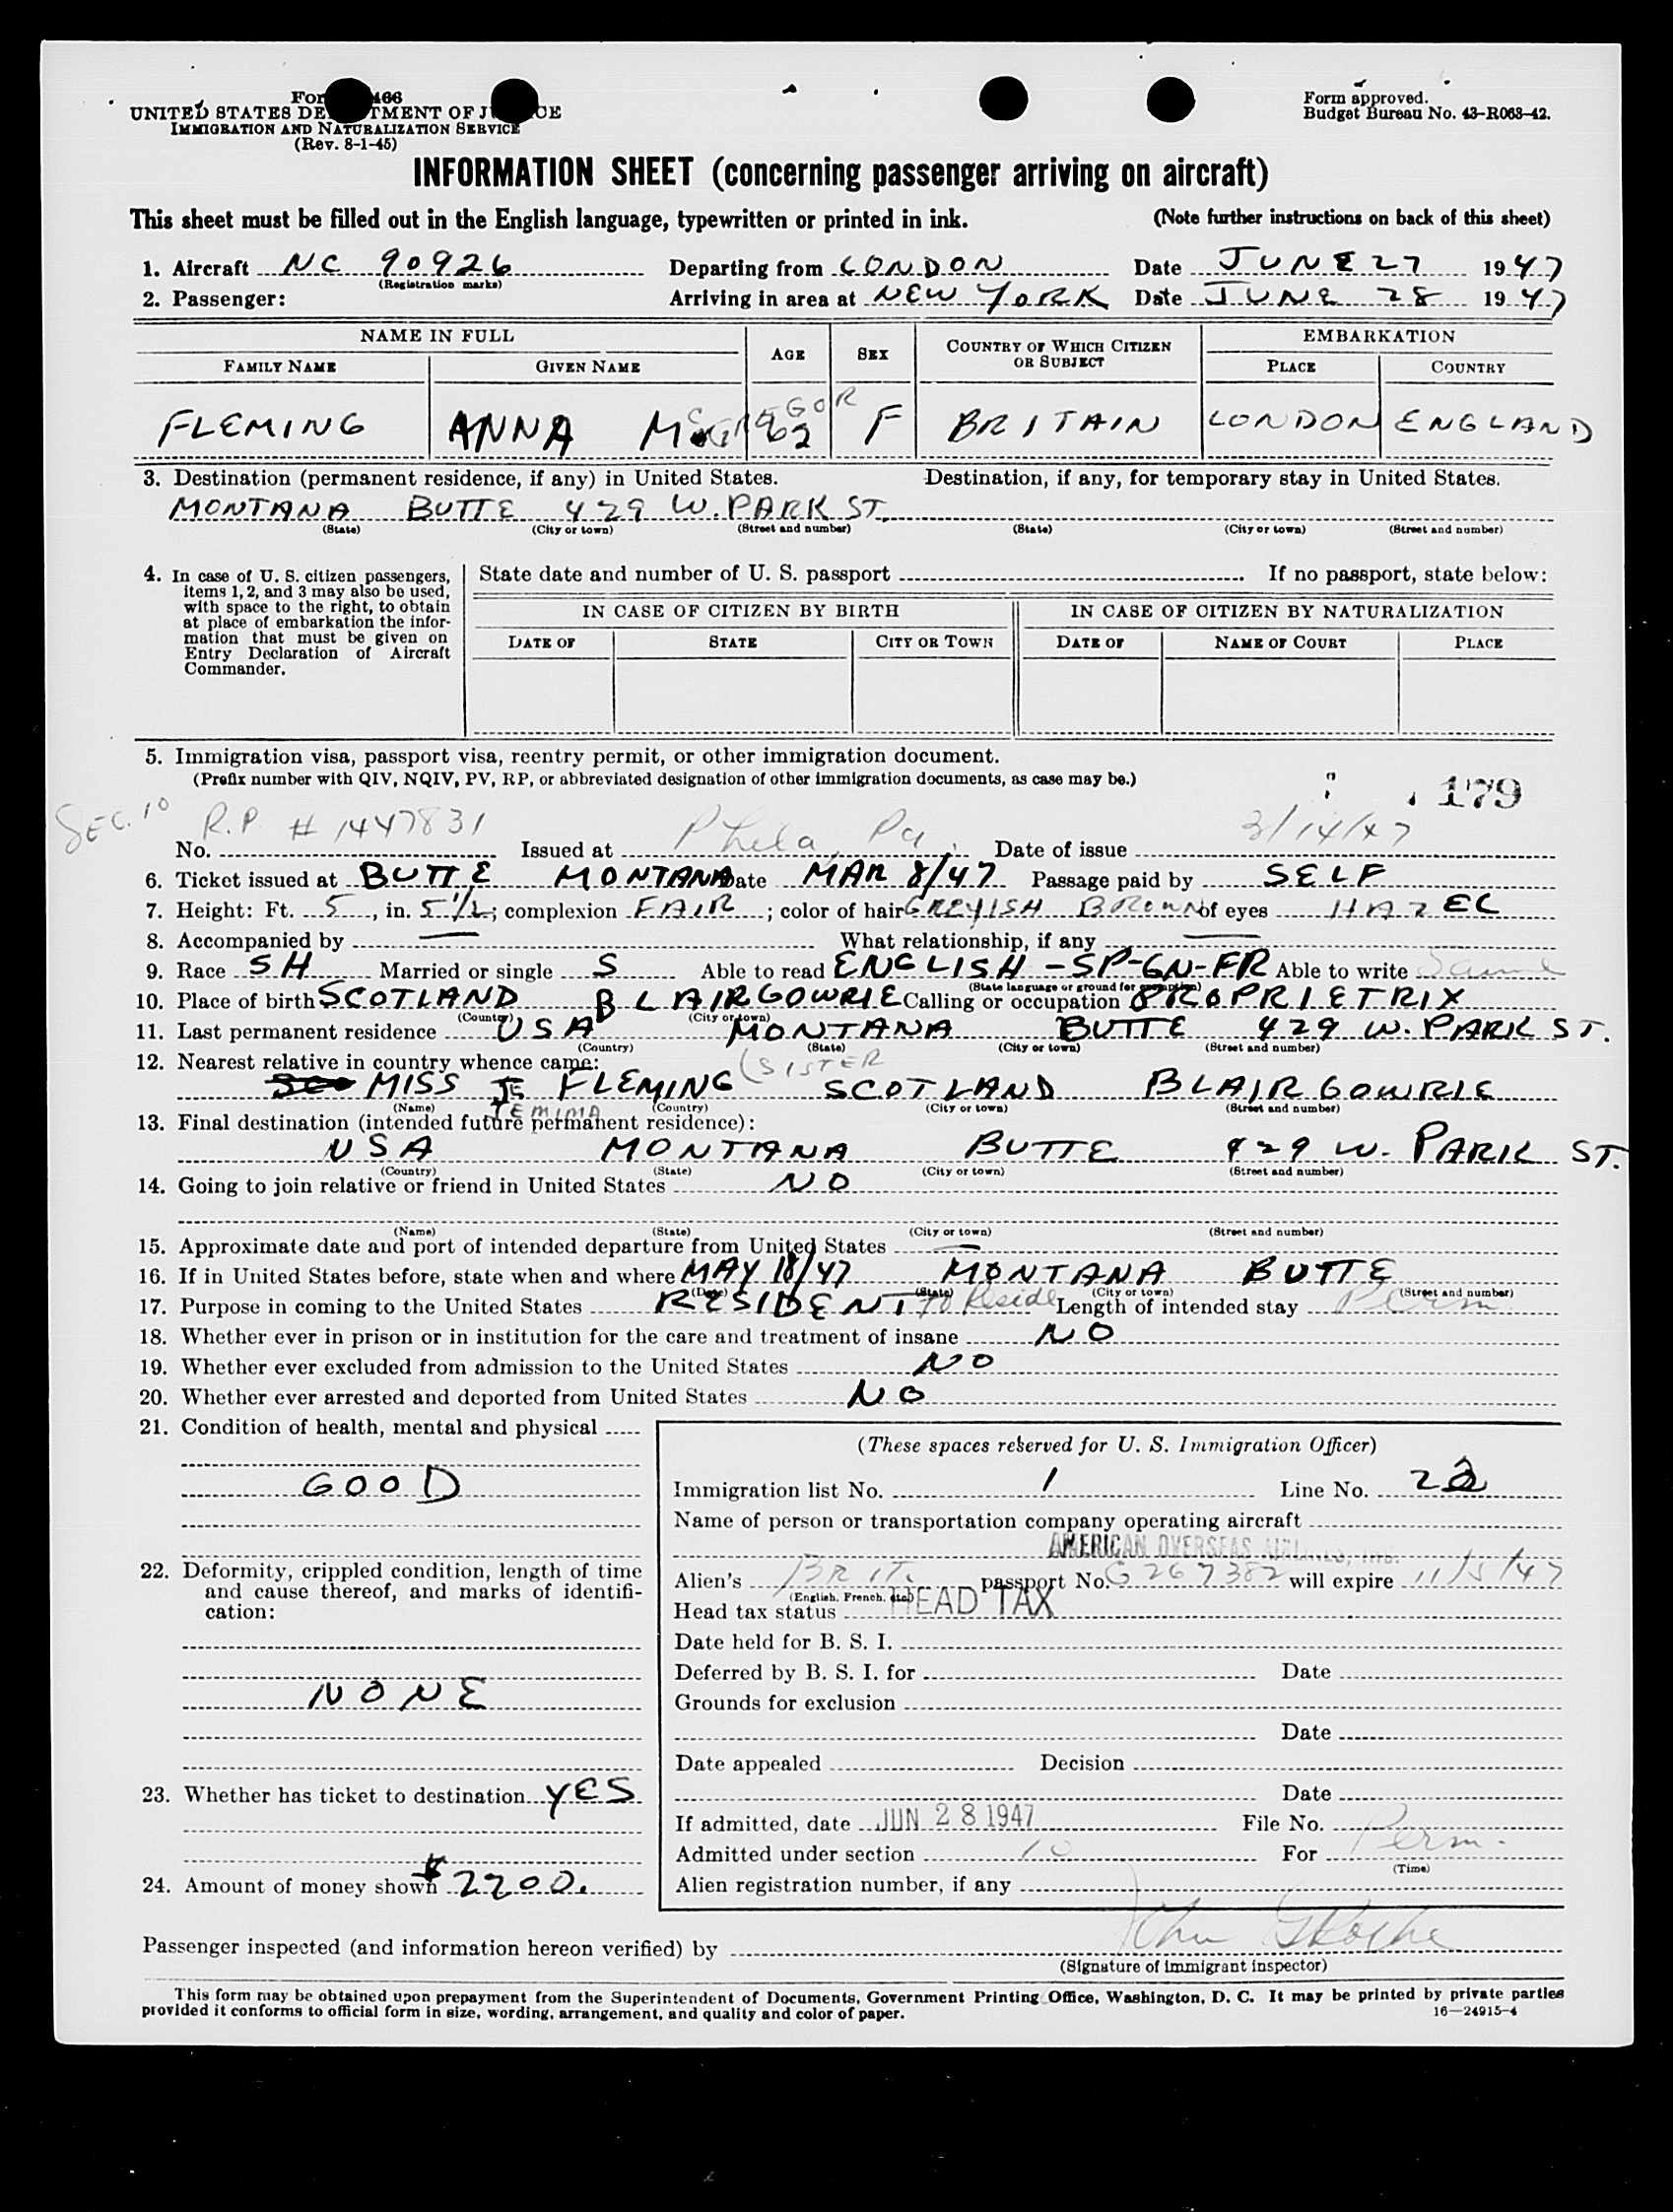 For 466
UNITED STATES DE TMENT OF J CE
IMMIGRATION AND NATURALIZATION SERVICE
(Rev. 8-1-45)
Form approved.
Budget Bureau No. 43-R063-42.
INFORMATION SHEET (concerning passenger arriving on aircraft)
This sheet must be filled out in the English language, typewritten or printed in ink. (Note further instructions on back of this sheet)
1. Aircraft NC 90926 Departing from LONDON Date JUNE 27 1947
(Registration marks)
2. Passenger: Arriving in area at NEW YORK Date JUNE 28 1947
NAME IN FULL AGE SEX COUNTRY OF WHICH CITIZEN OR SUBJECT EMBARKATION
FAMILY NAME GIVEN NAME PLACE COUNTRY
FLEMING ANNA McGREGOR 62 F BRITAIN LONDON ENGLAND
3. Destination (permanent residence, if any) in United States. Destination, if any, for temporary stay in United States.
MONTANA BUTTE 429 W. PARK ST.
(State) (City or town) (Street and number) (State) (City or town) (Street and number)
4. In case of U. S. citizen passengers, items 1, 2, and 3 may also be used, with space to the right, to obtain at place of embarkation the information that must be given on Entry Declaration of Aircraft Commander.
State date and number of U. S. passport If no passport, state below:
IN CASE OF CITIZEN BY BIRTH IN CASE OF CITIZEN BY NATURALIZATION
DATE OF STATE CITY OR TOWN DATE OF NAME OF COURT PLACE
5. Immigration visa, passport visa, reentry permit, or other immigration document.
(Prefix number with QIV, NQIV, PV, RP, or abbreviated designation of other immigration documents, as case may be.)
179
SEC. 10 R.P # 1447831 Phila, Pa. 3/14/47
No. Issued at Date of issue
6. Ticket issued at BUTTE MONTANA Date MAR 8/47 Passage paid by SELF
7. Height: Ft. 5, in. 5 1/2; complexion FAIR; color of hair GREYISH BROWN of eyes HAZEL
8. Accompanied by — What relationship, if any —
9. Race SH Married or single S Able to read ENGLISH -SP-GN-FR Able to write Same
(State language or ground for exemption)
10. Place of birth SCOTLAND BLAIRGOWRIE Calling or occupation PROPRIETRIX
(Country) (City or town)
11. Last permanent residence USA MONTANA BUTTE 429 W. PARK ST.
(Country) (State) (City or town) (Street and number)
12. Nearest relative in country whence came: (SISTER
MISS JE FLEMING SCOTLAND BLAIRGOWRIE
(Name) (Country) (City or town) (Street and number)
JEMIMA
13. Final destination (intended future permanent residence):
USA MONTANA BUTTE 429 W. PARK ST.
(Country) (State) (City or town) (Street and number)
14. Going to join relative or friend in United States NO
(Name) (State) (City or town) (Street and number)
15. Approximate date and port of intended departure from United States —
16. If in United States before, state when and where MAY 18/47 MONTANA BUTTE
(Date) (State) (City or town) (Street and number)
17. Purpose in coming to the United States RESIDENT To Reside Length of intended stay Perm
18. Whether ever in prison or in institution for the care and treatment of insane NO
19. Whether ever excluded from admission to the United States NO
20. Whether ever arrested and deported from United States NO
21. Condition of health, mental and physical
GOOD
22. Deformity, crippled condition, length of time and cause thereof, and marks of identification:
NONE
23. Whether has ticket to destination YES
24. Amount of money shown $2200.
(These spaces reserved for U. S. Immigration Officer)
Immigration list No. 1 Line No. 22
Name of person or transportation company operating aircraft
AMERICAN OVERSEAS AIRLINES, INC.
Alien's BRIT. passport No. G 267382 will expire 11/5/47
(English, French, etc.)
Head tax status HEAD TAX
Date held for B. S. I.
Deferred by B. S. I. for Date
Grounds for exclusion
Date
Date appealed Decision
Date
If admitted, date JUN 28 1947 File No.
Admitted under section 10 For Perm.
(Time)
Alien registration number, if any
Passenger inspected (and information hereon verified) by John
(Signature of immigrant inspector)
This form may be obtained upon prepayment from the Superintendent of Documents, Government Printing Office, Washington, D. C. It may be printed by private parties
provided it conforms to official form in size, wording, arrangement, and quality and color of paper. 16—24915-4